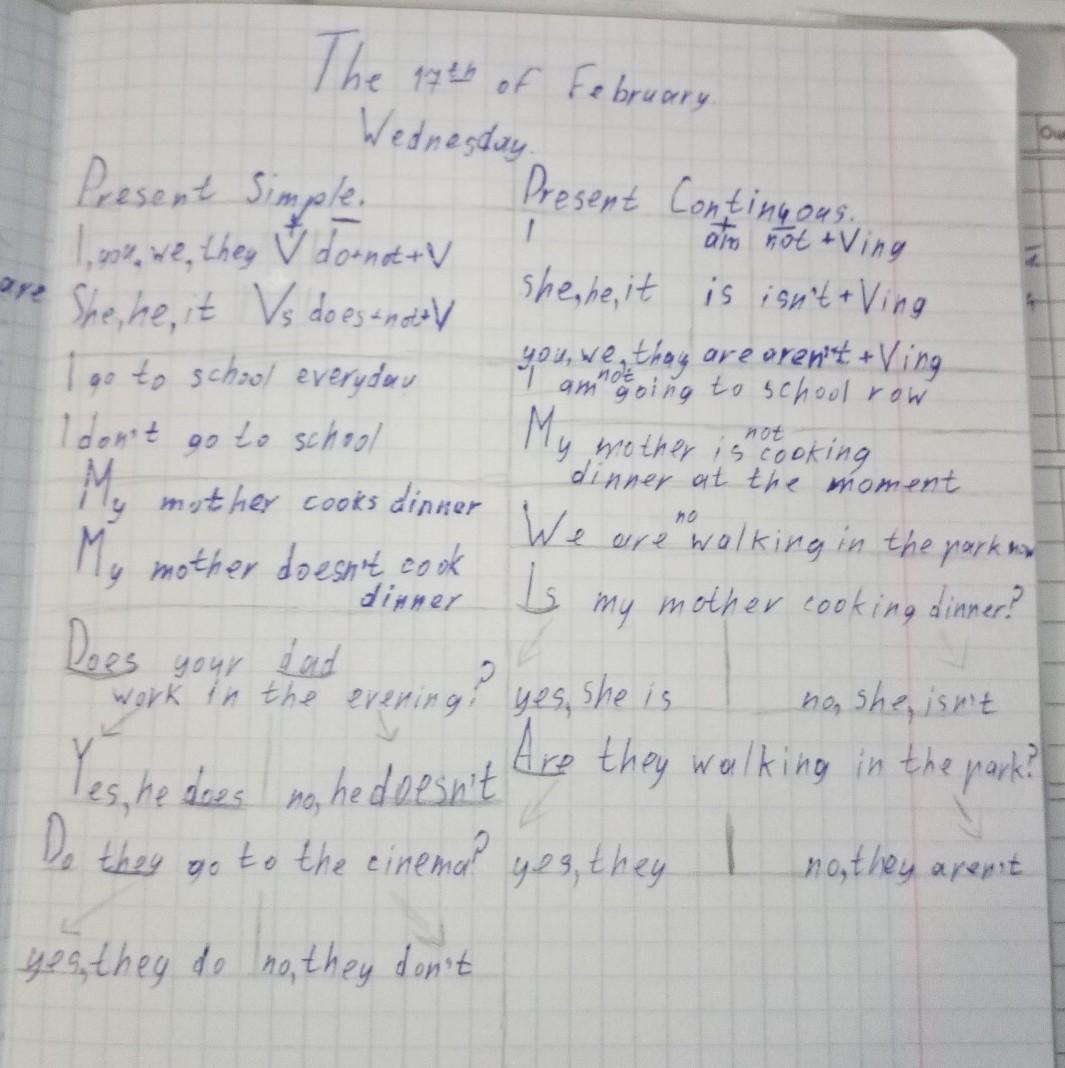 The 17th of February.
Wednesday.
Present Simple.
+ -
I, you, we, they V do+not+V
She, he, it Vs does+not+V
I go to school everyday
I don't go to school
My mother cooks dinner
My mother doesn't cook
dinner
Does your dad
work in the evening?
Yes, he does no, he doesn't
Do they go to the cinema?
yes, they do no, they don't
Present Continuous.
+ -
I am not +Ving
she, he, it is isn't + Ving
you, we, they are aren't + Ving
not
I am going to school now
not
My mother is cooking
dinner at the moment
no
We are walking in the park now
Is my mother cooking dinner?
yes, she is no, she, isn't
Are they walking in the park?
yes, they no, they aren't
are